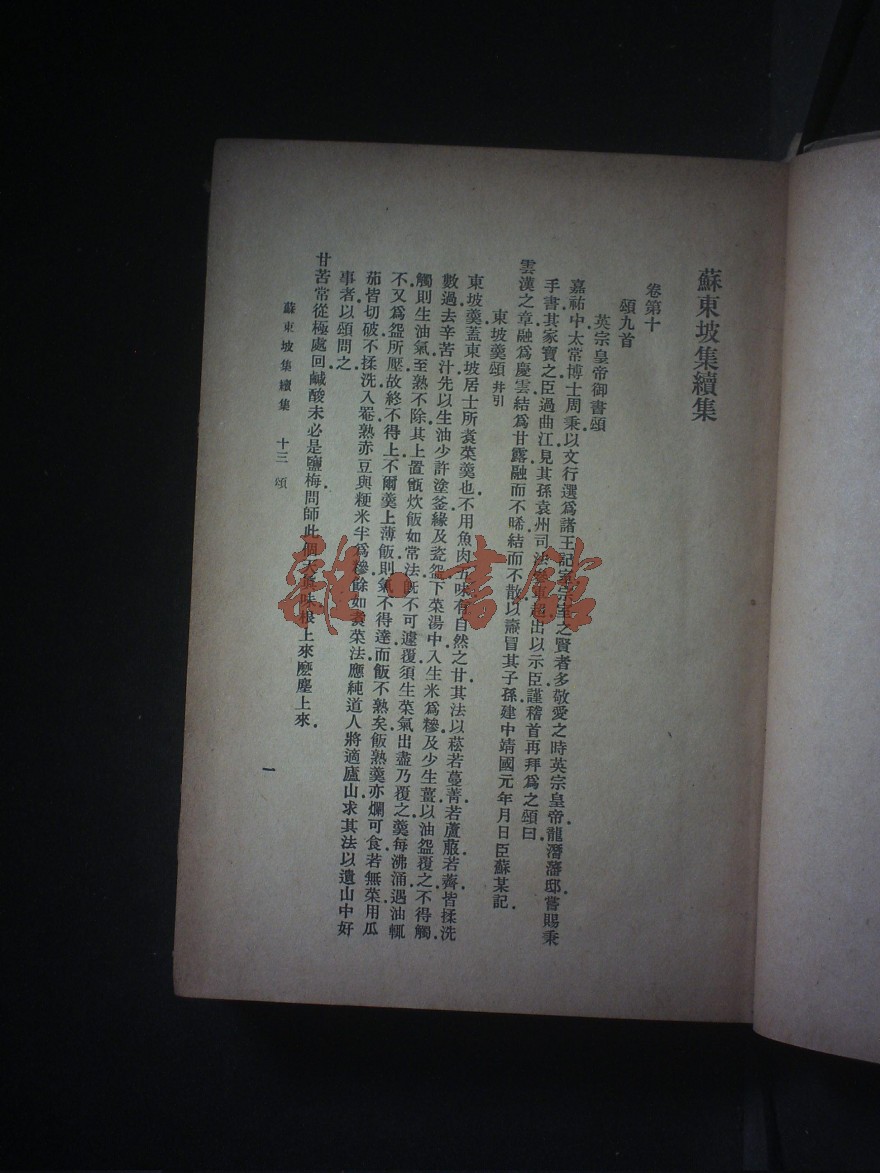 蘇東坡集續集
卷第十
頌九首
英宗皇帝御書頌
嘉祐中太常博士周秉以文行選爲諸王記室宗室之賢者多敬愛之時英宗皇帝龍潛藩邸嘗賜秉
手書其家寶之臣過曲江見其孫袁州司法參軍超出以示臣謹稽首再拜爲之頌曰
雲漢之章融爲慶雲結爲甘露融而不晞結而不散以燾冒其子孫建中靖國元年月日臣蘇某記
東坡羹頌幷引
東坡羹蓋東坡居士所煑菜羹也不用魚肉五味有自然之甘其法以菘若蔓菁若蘆菔若薺皆揉洗
數過去辛苦汁先以生油少許塗釜緣及瓷盌下菜湯中入生米爲糝及少生薑以油盌覆之不得觸
觸則生油氣至熟不除其上置甑炊飯如常法旣不可遽覆須生菜氣出盡乃覆之羹每沸涌遇油輒
不又爲盌所壓故終不得上不爾羹上薄飯則氣不得達而飯不熟矣飯熟羹亦爛可食若無菜用瓜
茄皆切破不揉洗入罨熟赤豆與粳米半爲糝餘如煑菜法應純道人將適廬山求其法以遺山中好
事者以頌問之
甘苦常從極處回鹹酸未必是鹽梅問師此個天眞味根上來麼塵上來
蘇東坡集續集 十三 頌
一
雜·書館